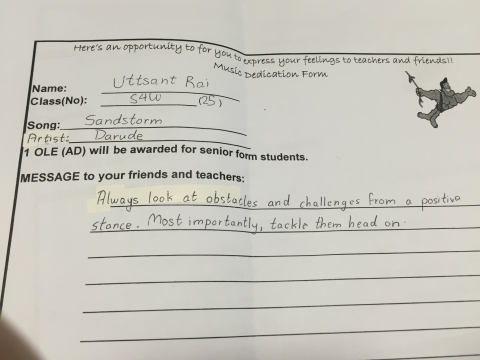 Here's an opportunity to for you to express your feelings to teachers and friends!!
Music Dedication Form
Name: Uttsant Rai
Class(No): S4W (25)
Song: Sandstorm
Artist: Darude
1 OLE (AD) will be awarded for senior form students.
MESSAGE to your friends and teachers:
Always look at obstacles and challenges from a positive
stance. Most importantly, tackle them head on.